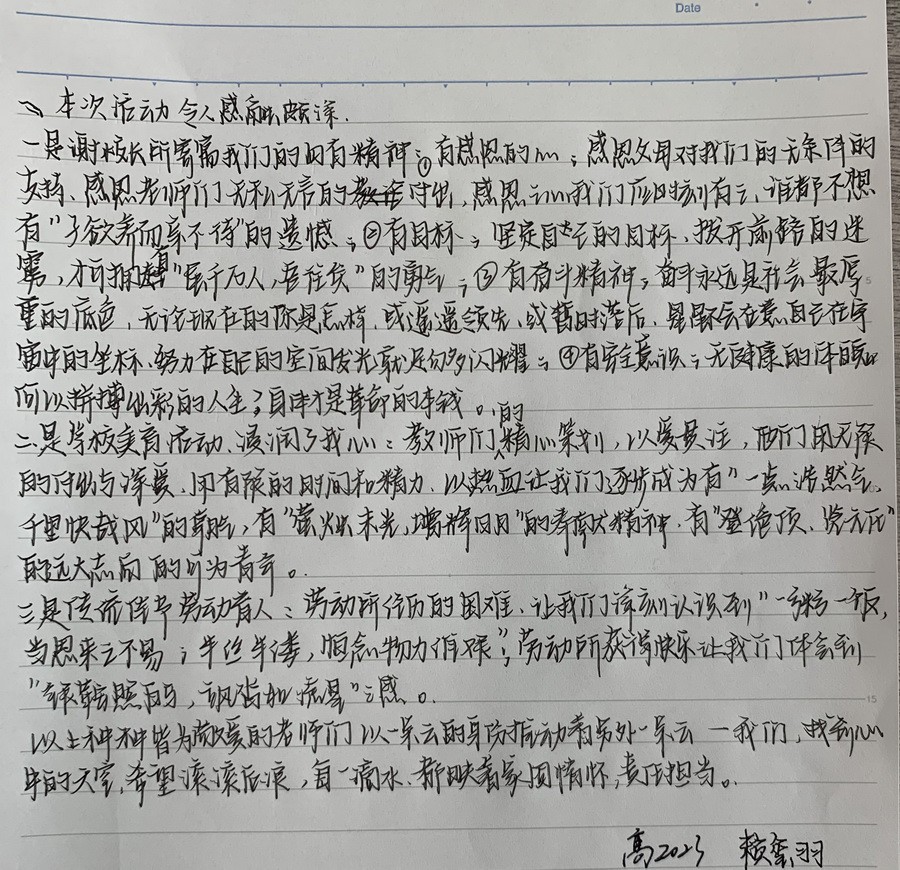 Date
本次活动令人感触颇深.
一是谢校长所寄寓我们的四有精神:①有感恩的心;感恩父母对我们的无条件的
支持、感恩老师们无私无言的付出,感恩之心我们应时刻有之,谁都不想
有"子欲养而亲不待"的遗憾;②有目标;坚定自己的目标、拨开前路的迷
雾,才可拥有"虽千万人,吾往矣"的勇气;③有奋斗精神;奋斗永远是社会最厚
重的底色,无论现在的你是怎样,或遥遥领先,或暂时落后,会在意自己在宇
宙中的坐标、努力在自己的空间发光就足够多闪耀;④有安全意识;无健康的体魄如
何以拼搏出彩的人生?身体才是革命的本钱。
二是学校美育活动、浸润了我心:教师们的精心策划,以爱灌注,他们用无限
的付出与深爱、用有限的时间和精力、以热血让我们逐步成为有"一点浩然气,
千里快哉风"的胸怀,有"萤烛末光,增辉日月"的奉献精神,有"登绝顶、览无氏"
的远大志向的有为青年。
三是传统佳节劳动育人:劳动所经历的困难、让我们深刻认识到"一粥一饭,
当思来之不易;半丝半缕,恒念物力维艰";劳动所获得快乐让我们体会到
"银鞍照白马,飒沓如流星"之感。
以上种种皆为敬爱的老师们以一朵云的身份推动着另外一朵云—我们,找到心
中的天空,希望滚滚后浪,每一滴水、都映着家国情怀,责任担当。
高2023 赖奕羽